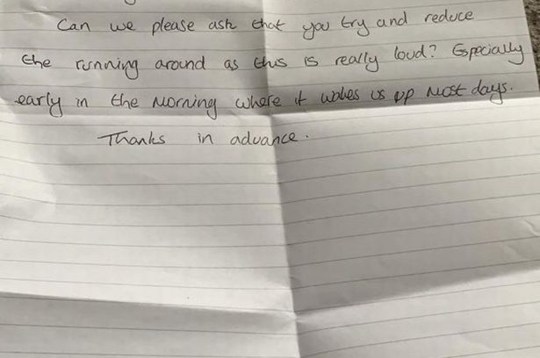 Can we please ask that you try and reduce
the running around as this is really loud? Especially
early in the morning where it wakes us up most days.
Thanks in advance.